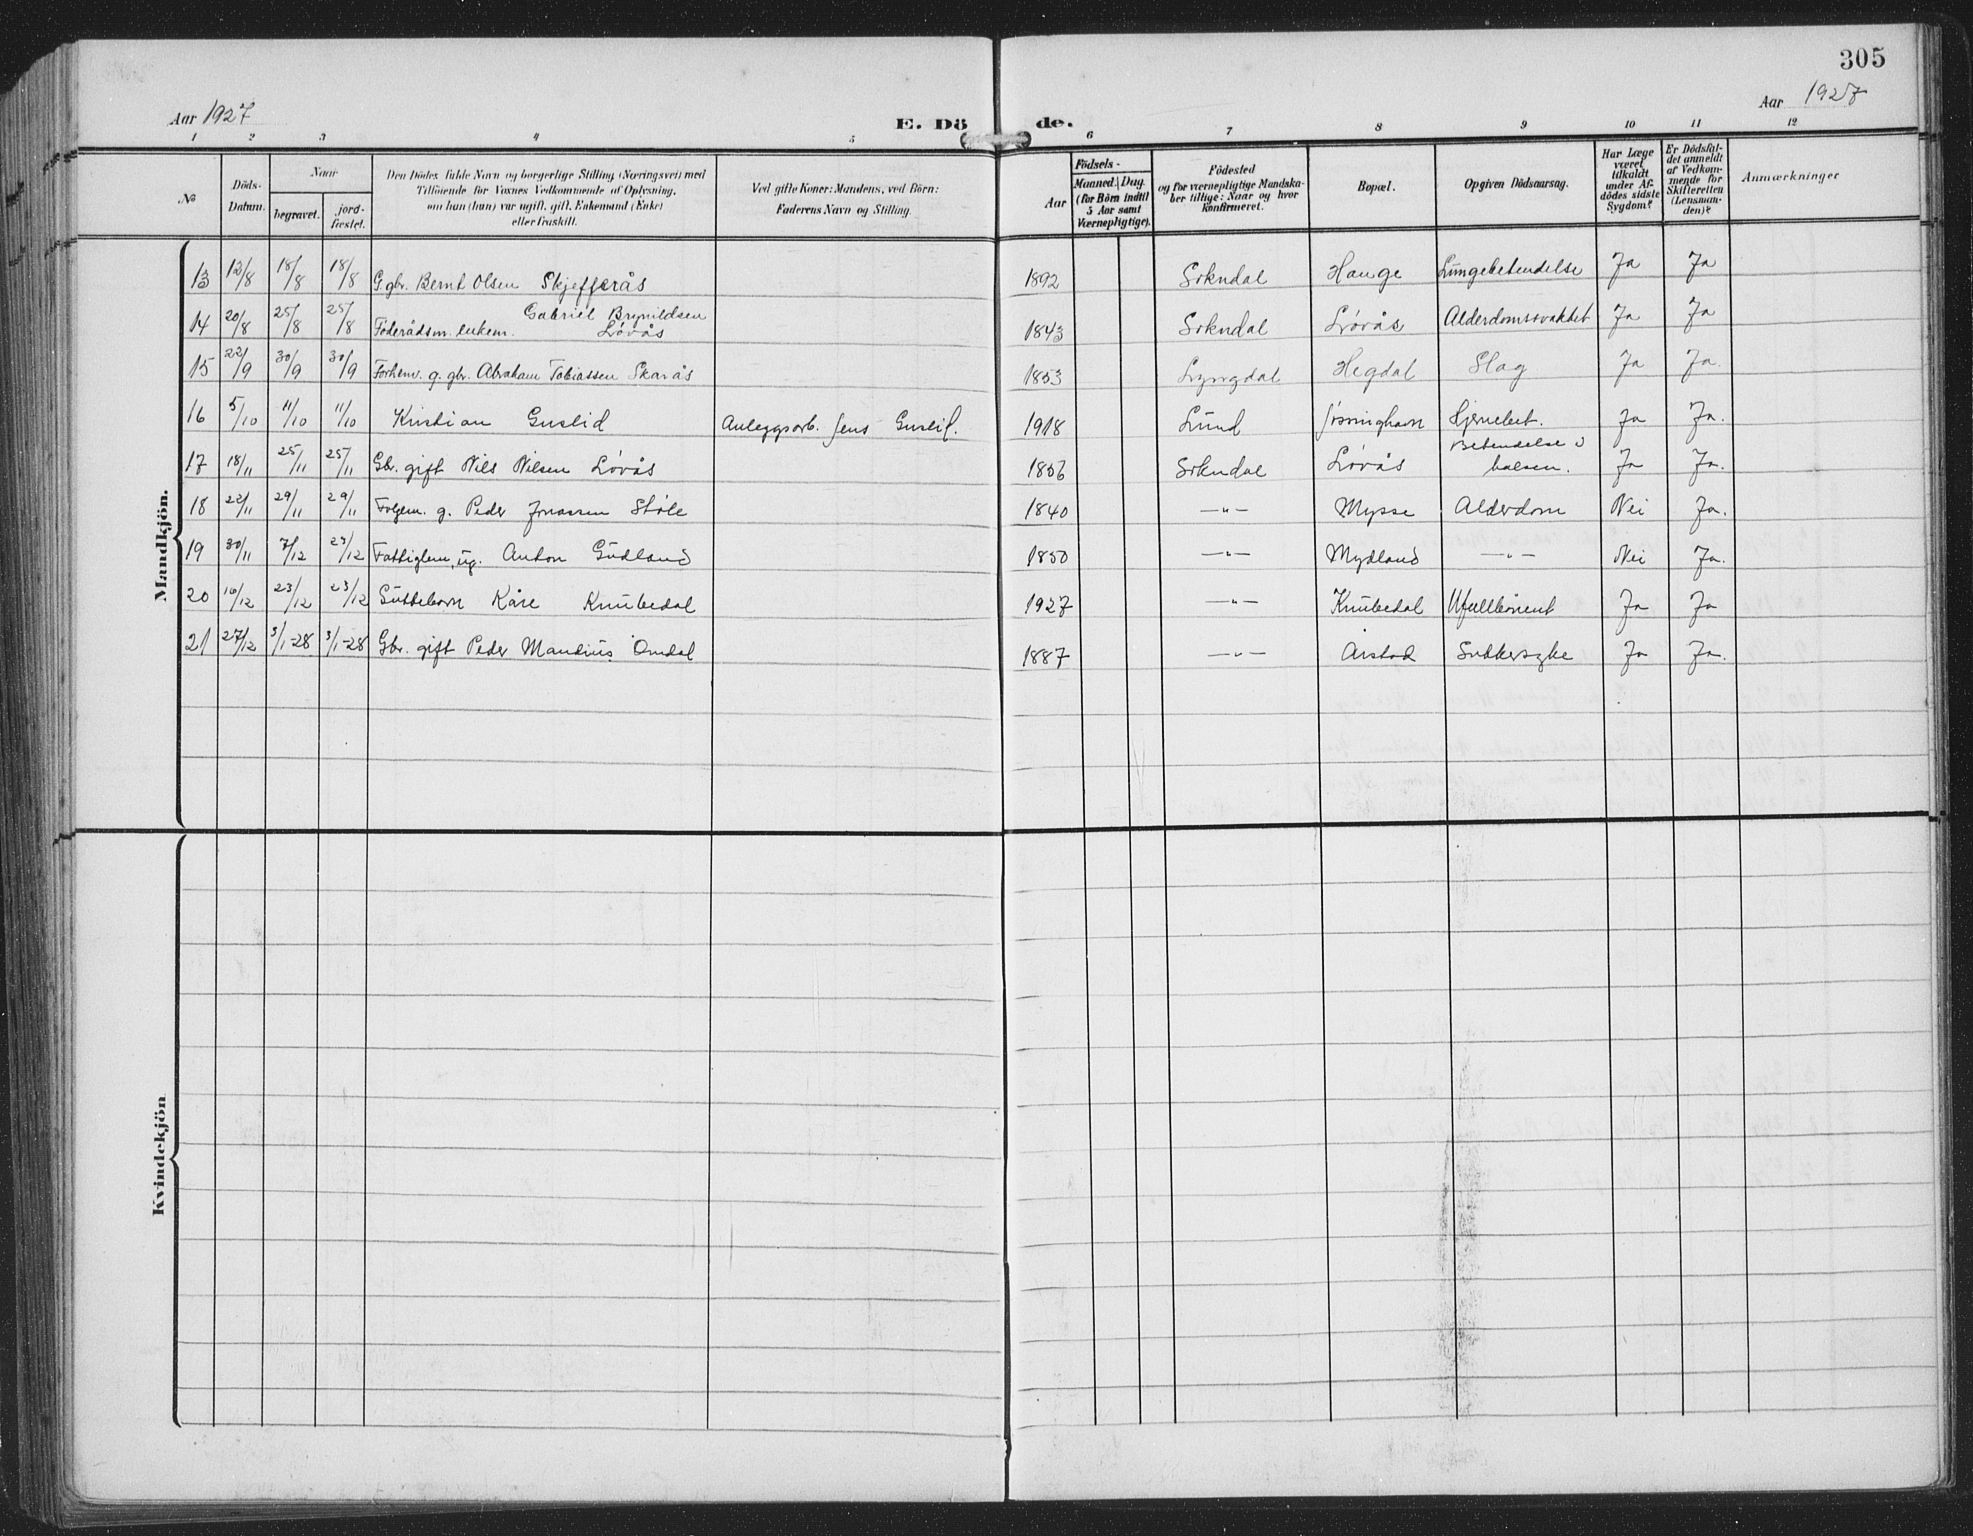 305
Aar 1927
E. Dö de.
Aar 1927
1 2 3 4 5 6 7 8 9 10 11 12
№
Döds-
Datum.
Naar
begravet.
jord-
fæstet.
Den Dödes fulde Navn og borgerlige Stilling (Næringsvei) med
Tilföiende for Voxnes Vedkommende af Oplysning,
om han (hun) var ugift, gift, Enkemand (Enke)
eller fraskilt.
Ved gifte Koner: Mandens, ved Börn:
Faderens Navn og Stilling.
Födsels-
Aar
Maaned. Dag.
(for Börn indtil
5 Aar samt
Værnepligtige).
Födested
og for værnepligtige Mandska-
ber tillige: Naar og hvor
konfirmeret.
Bopæl.
Opgiven Dödsaarsag.
Har Læge
været
tilkaldt
under Af-
dödes sidste
Sygdom?
Er Dödsfal-
det anmeldt
af Vedkom-
mende for
Skifteretten
(Lensman-
den)?
Anmærkninger
Mandkjön.
13 12/8 18/8 18/8 G.gbr. Bernt Olsen Skjefferås 1892 Sokndal Hauge Lungebetendelse Ja Ja
Gabriel Brynildsen
14 20/8 25/8 25/8 Föderådsm. enkem. Lövås 1843 Sokndal Lövås Alderdomssvakhet Ja Ja
15 22/9 30/9 30/9 Forhenv. g. gbr. Abraham Tobiassen Skarås 1853 Lyngdal Hegdal Slag Ja Ja.
16 5/10 11/10 11/10 Kristian Guslid Anleggsarb. Jens Guslid. 1918 Lund Jössinghavn Ja Ja.
Betendelse i
17 18/11 25/11 25/11 Gbr. gift Nils Nilsen Lövås 1856 Sokndal Lövås halsen. Ja Ja.
18 22/11 29/11 29/11 g. Peder Jonassen Stöle 1840 —"— Mysse Alderdom Nei Ja.
19 30/11 7/12 23/12 Fattiglem, ug. Anton Gudland 1850 —"— Mydland —"— Nei Ja.
20 16/12 23/12 23/12 Guttebarn Kåre Knubedal 1927 —"— Knubedal Ufullbåren Ja Ja
21 27/12 3/1-28 3/1-28 Gbr. gift Peder Mandius Omdal 1887 —"— Årstad Sukkersyke Ja Ja.
Kvindekjön